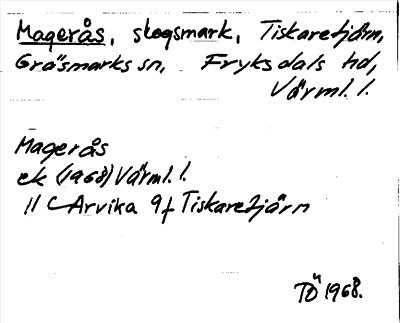 Magerås, skogsmark, Tiskaretjärn,
Gräsmarks sn, Fryksdals hd,
Värml. l.
Magerås
ek (1968) Värml. l.
11 C Arvika 9f Tiskaretjärn
TÖ 1968.